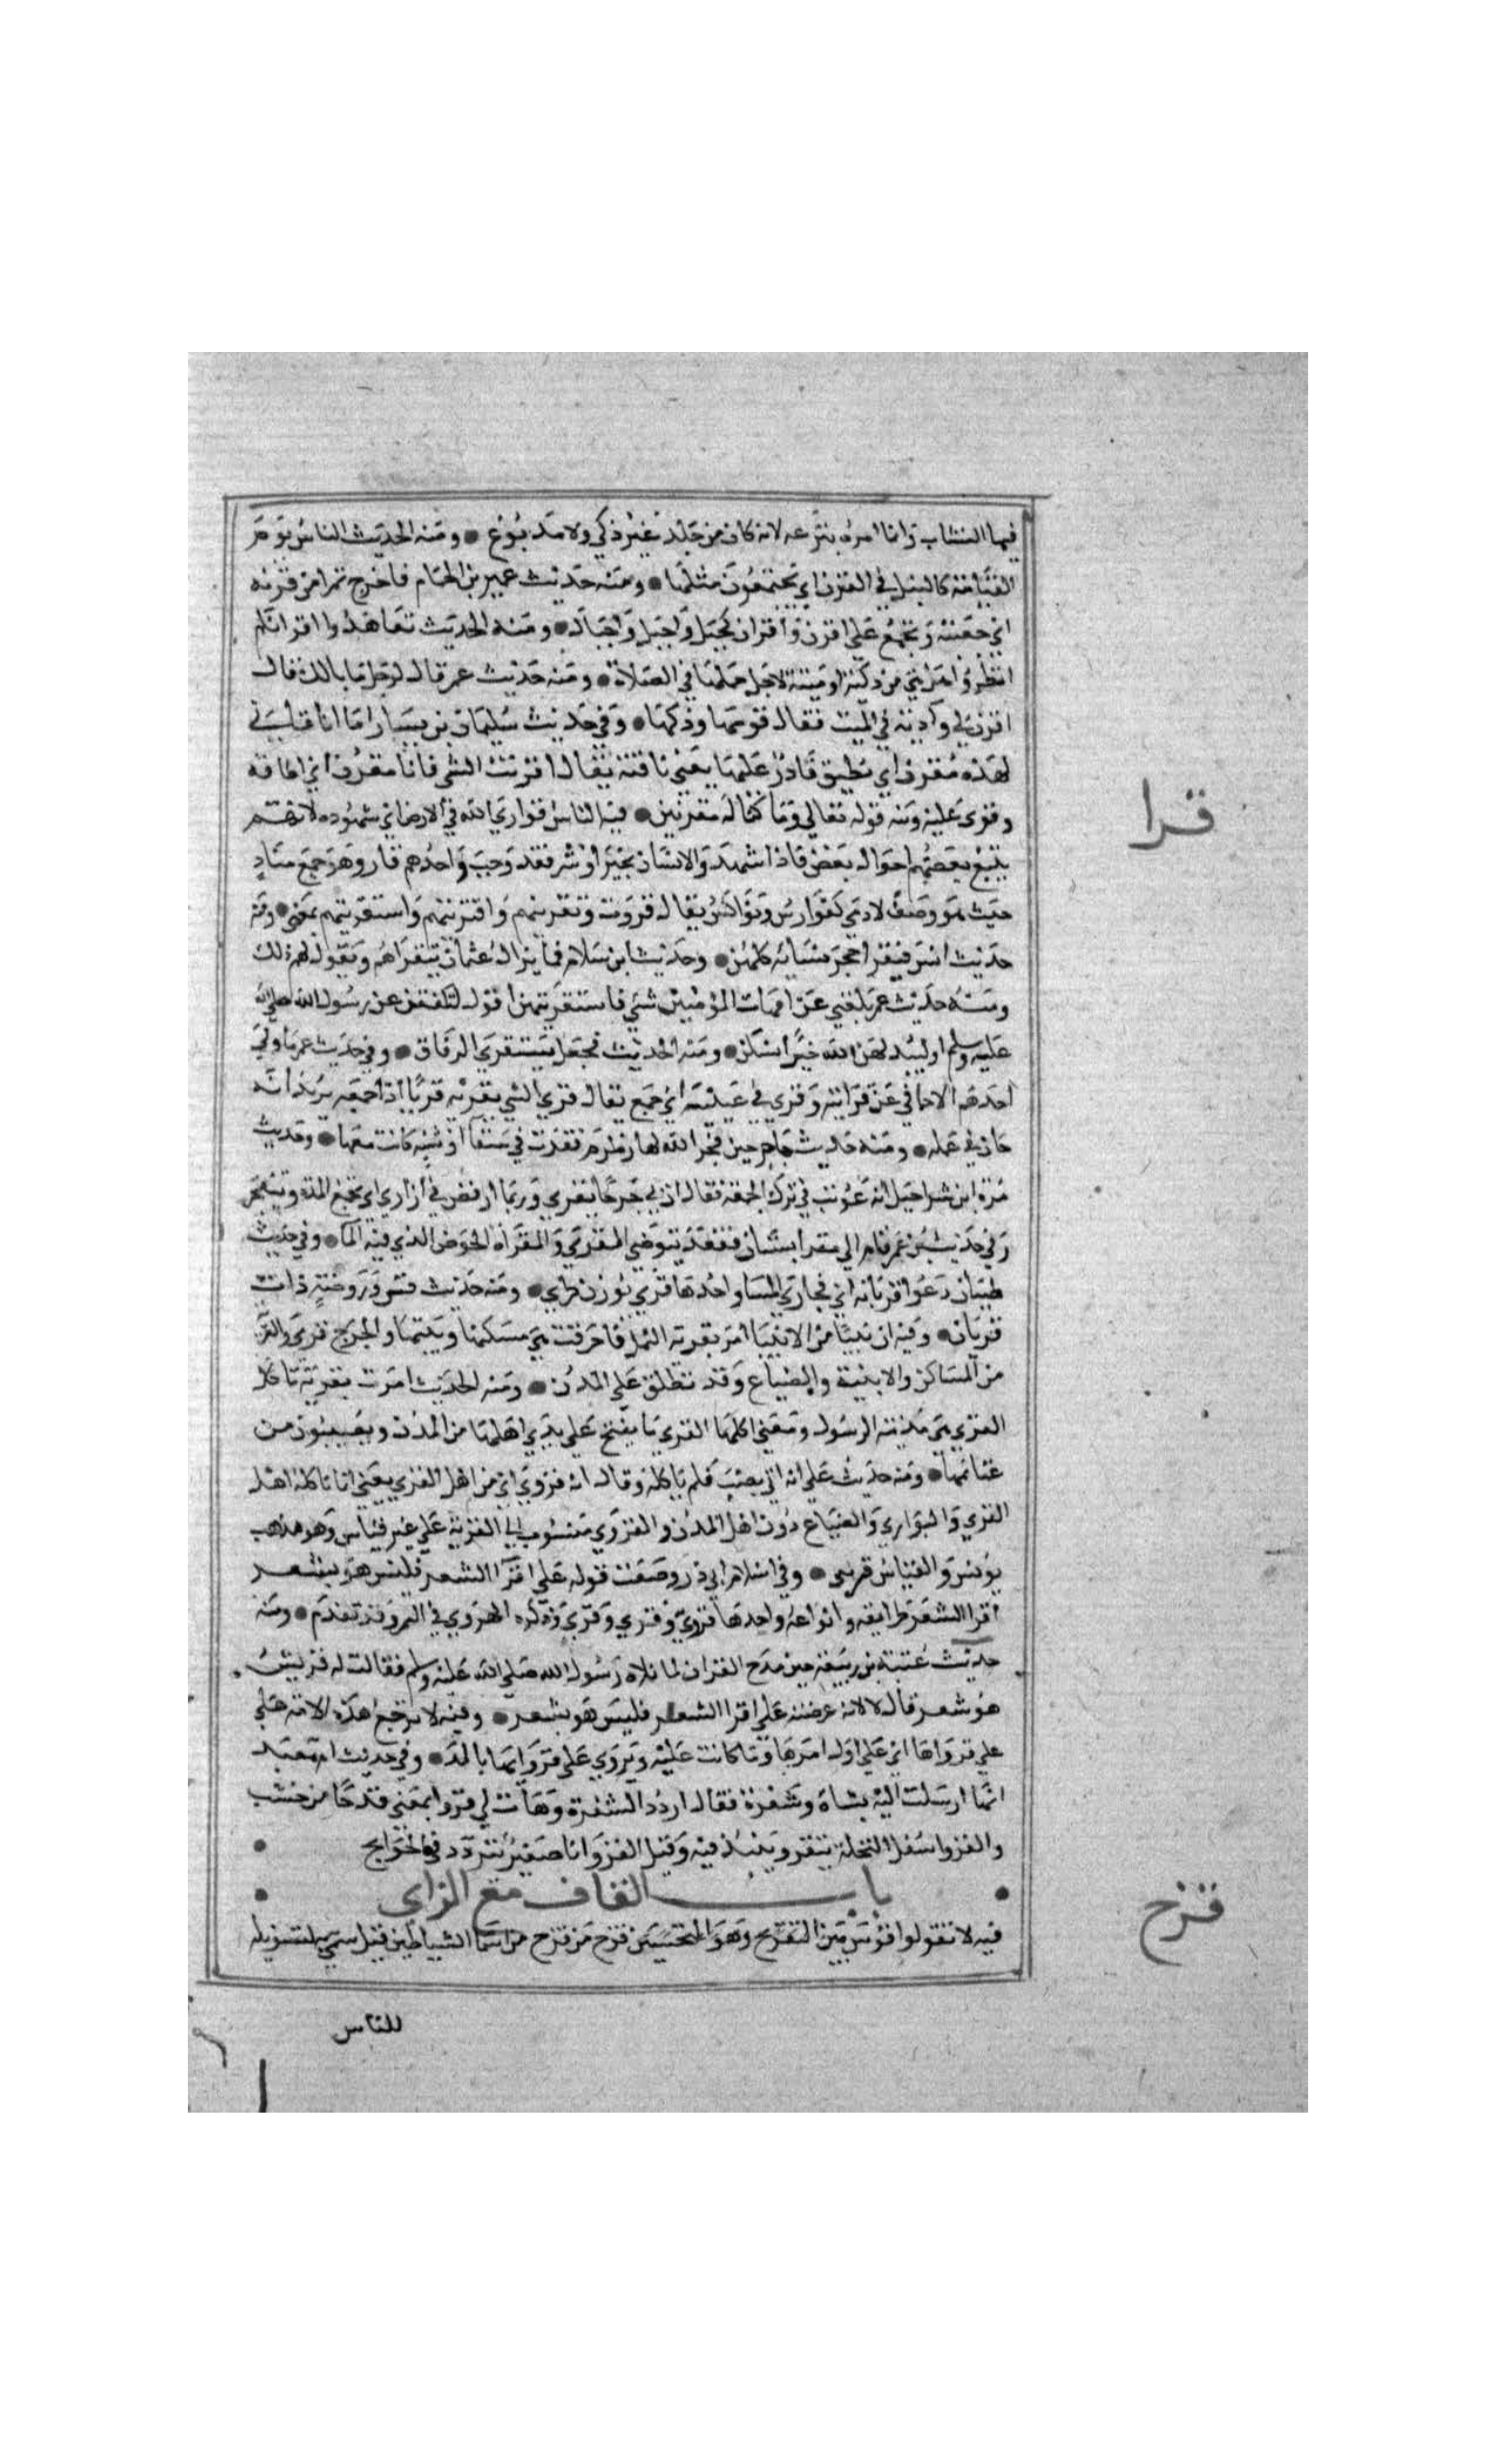 فيها النشاب وانما امره بنزعه لانه كان من جلد غير ذكي ولا مدبوغ ومنه الحديث الناس يوم
القيامة كالنبل في القرن اي مجتمعون مثلها ومنه حديث عمير بن الحمام فاخرج تمرا من قرنه
اي جعبته ويجمع علي اقرن واقران كجبل واجبل واجبال ومنه الحديث تعاهدوا اقرانكم
انظروا امن ذكية او ميتة لاجل حملها في الصلاة ومنه حديث عمر قال لرجل ما مالك فقال
اقرن لي وآدبة في المبت فقال قومها وذكها وفي حديث سليمان بن يسار اما انا فاني
لهذه مقرن اي مطيق قادر عليها يعني ناقته يقال اقرنت الشي فانا مقرن اي اطاقه
وقوي عليه ومنه قوله تعالي وما كنا له مقرنين فيه الناس قواري الله في الارض اي شهوده لانهم
قرا
يتبع بعضهم احوال بعض فاذا شهدوا لانسان بخير او شر فقد وجب واحدهم قار وهو جمع شاذ
حيث هو وصف لادمي كفوارس ونواكس يقال قروت وتقريتهم واقتريتهم واستقريتهم بمعني ومنه
حديث انس فيتقرا حجر نسائه كلهن وحديث ابن سلام فما زال عثمان يتقراهم ويقول لهم ذلك
ومنه حديث عمر بلغني عن امهات المؤمنين شي فاستقريتهن اقول لتكففن عن رسول الله صلي الله
عليه وسلم او ليبدلهن الله خيرا منكن ومنه الحديث فجعل يستقري الرفاق وفي حديث عمر ما ولي
احد هم الا حامي عن قرابته وقري في عيبته اي جمع يقال قري الشي يقريه قريا اذا جمعه يريد انه
خان في عمله ومنه حديث هاجر حين فجر الله لها زمزم فقرت في سقا او شنه كانت معها وحديث
مرة ابن شراحيل انه عوتب في ترك الجمعة فقال ان بي جرحا يقري وربما ارفض في ازاري اي يجمع المدة وينفجر
وفي حديث بن عمر قام الي مقرا بستان فقعد يتوضي المقري والمقراة الحوض الذي فيه الما وفي حديث
ظبيان رعوا قريانه اي مجاري الما واحدها قري بوزن طري ومنه حديث قس وروضة ذات
قريان وفيه ان نبيا من الانبيا امر بقرية النمل فاحرقت هي مسكنها وبيتها والجمع قري والقرية
من المساكن والابنية والضياع وقد تطلق علي المدن ومنه الحديث امرت بقرية تاكل
القري هي مدينة الرسول ومعني اكلها القري ما يفتح علي يدي اهلها من المدن ويصيبون من
غنائمها ومنه حديث علي انه اتي بضب فلم ياكله وقال انه قروي اي من اهل القري يعني انما تاكله اهل
القري والبواري والضياع دون اهل المدن والقروي منسوب الي القرية علي غير قياس وهو مذهب
يونس والقياس قريي وفي اسلام ابي ذر وضعت قوله علي اقرا الشعر فليس هو بشعر
اقرا الشعر طرايقه وانواعه واحدها قرو وقري وقري وذكره الهروي في الهمز وقد تقدم ومنه
حديث عتبة بن ربيعة حين مدح القران لما تلاه رسول الله صلي الله عليه وسلم فقالت له قريش
هو شعر قال لا لانه عرضته علي اقرا الشعر فليس هو بشعر وفيه لا ترجع هذه الامة علي
علي قرواها اي علي اول امرها وما كانت عليه ويروي علي قروائها بالمد وفي حديث ام معبد
انها ارسلت اليه بشاة وشفرة فقال اردد الشفرة وهات لي قروا يعني قدحا من خشب
والقرو اسفل النخلة ينقر وينبذ فيه وقيل القرو انا صغير يتردد في الحوايج
باب القاف مع الزاي
قزح
فيه لا تقولوا قوس بين التقزيح وهو التحسين قزح من قزح من اسما الشياطين قيل سمي به لتسويله
للناس